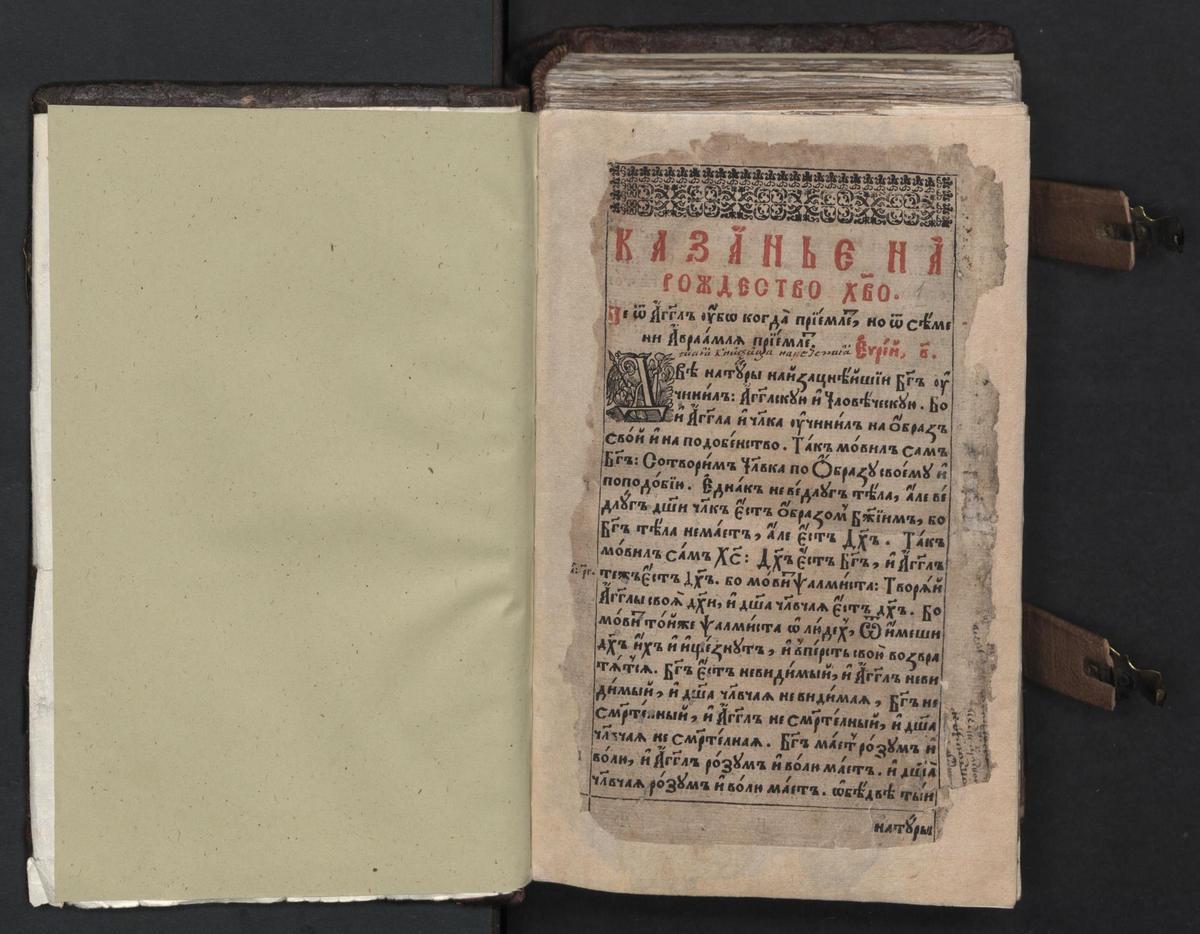 КАЗА́НЬЕ НА̀
РОЖДЕСТВО ХВ҃О.
Не ѿ А҆́гг҃лъ ᲂу҆́бѡ когда̀ прїе́млет, но ѿ сѣ́ме
ни А҆враа́млѧ прїе́млет. Є҆вре́й, в҃.
ДВѢ̀ нату́ры найзацнѣ́йшїи Бг҃ъ ᲂу҆
чини́лъ: А҆́гг҃лскую и҆ Человѣ́ческую. Бо
и҆ А҆́гг҃ла и҆ чл҃ка ᲂу҆чини́лъ на ѻ҆́бразъ
сво́й и҆ на подобе́нство. Та́къ мо́вилъ самъ
Бг҃ъ: Сотвори́мъ чл҃вка по Ѻ҆́бразу своему̀ и҆
по подо́бїи. Є҆дна́къ не ве́длугъ тѣ́ла, а҆́ле ве́
длугъ дш҃и чл҃къ є҆́стъ ѻ҆́бразом Бж҃їимъ, бо
Бг҃ъ тѣ́ла не ма́етъ, а҆́ле є҆́стъ Дх҃ъ. Та́къ
мо́вилъ са́мъ Хс҃: Дх҃ъ є҆́стъ Бг҃ъ, и҆ А҆́гг҃лъ
тежъ є҆́стъ Дх҃ъ. бо мо́вит ѱалми́ста: Творѧ́й
А҆́гг҃лы своѧ̀ дх҃и, и҆ дш҃а чл҃вчаѧ є҆́стъ дх҃ъ. Бо
мо́вит то́йже Ѱалми́ста ѡ҆ лю́дех, Ѿи́меши
дх҃ъ и҆́хъ и҆ и҆ще́знутъ, и҆ в пе́рсть свою̀ возвра
тѧ́тсѧ. Бг҃ъ є҆́стъ неви́димый, и҆ А҆́гг҃лъ неви
димый, и҆ дш҃а чл҃вчаѧ неви́димаѧ, Бг҃ъ не
смр҃те́лный, и҆ А҆́гг҃лъ не смр҃те́лный, и҆ дш҃а
чл҃вчаѧ не смр҃те́лнаѧ. Бг҃ъ ма́ет ро́зумъ и҆
во́лю, и҆ А҆́гг҃лъ ро́зумъ и҆ во́лю ма́етъ. и҆ дш҃а
чл҃вчаѧ ро́зумъ и҆ во́лю ма́етъ. ѡ҆бѣ́двѣ ты́и
нату́ры